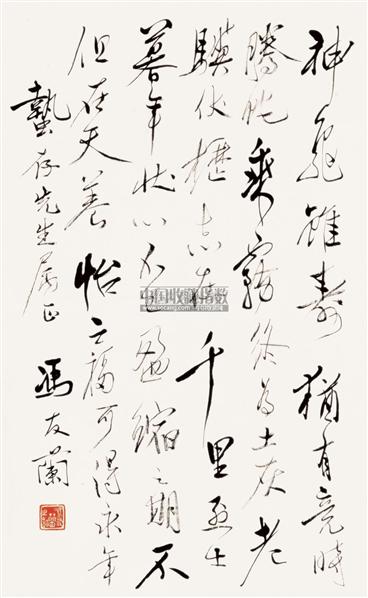 神龜雖壽猶有竟時
騰蛇乘霧終為土灰老
驥伏櫪志在千里烈士
暮年壯心不已盈縮之期不
但在天養怡之福可得永年
蟄存先生屬正 馮友蘭
中国收藏指数